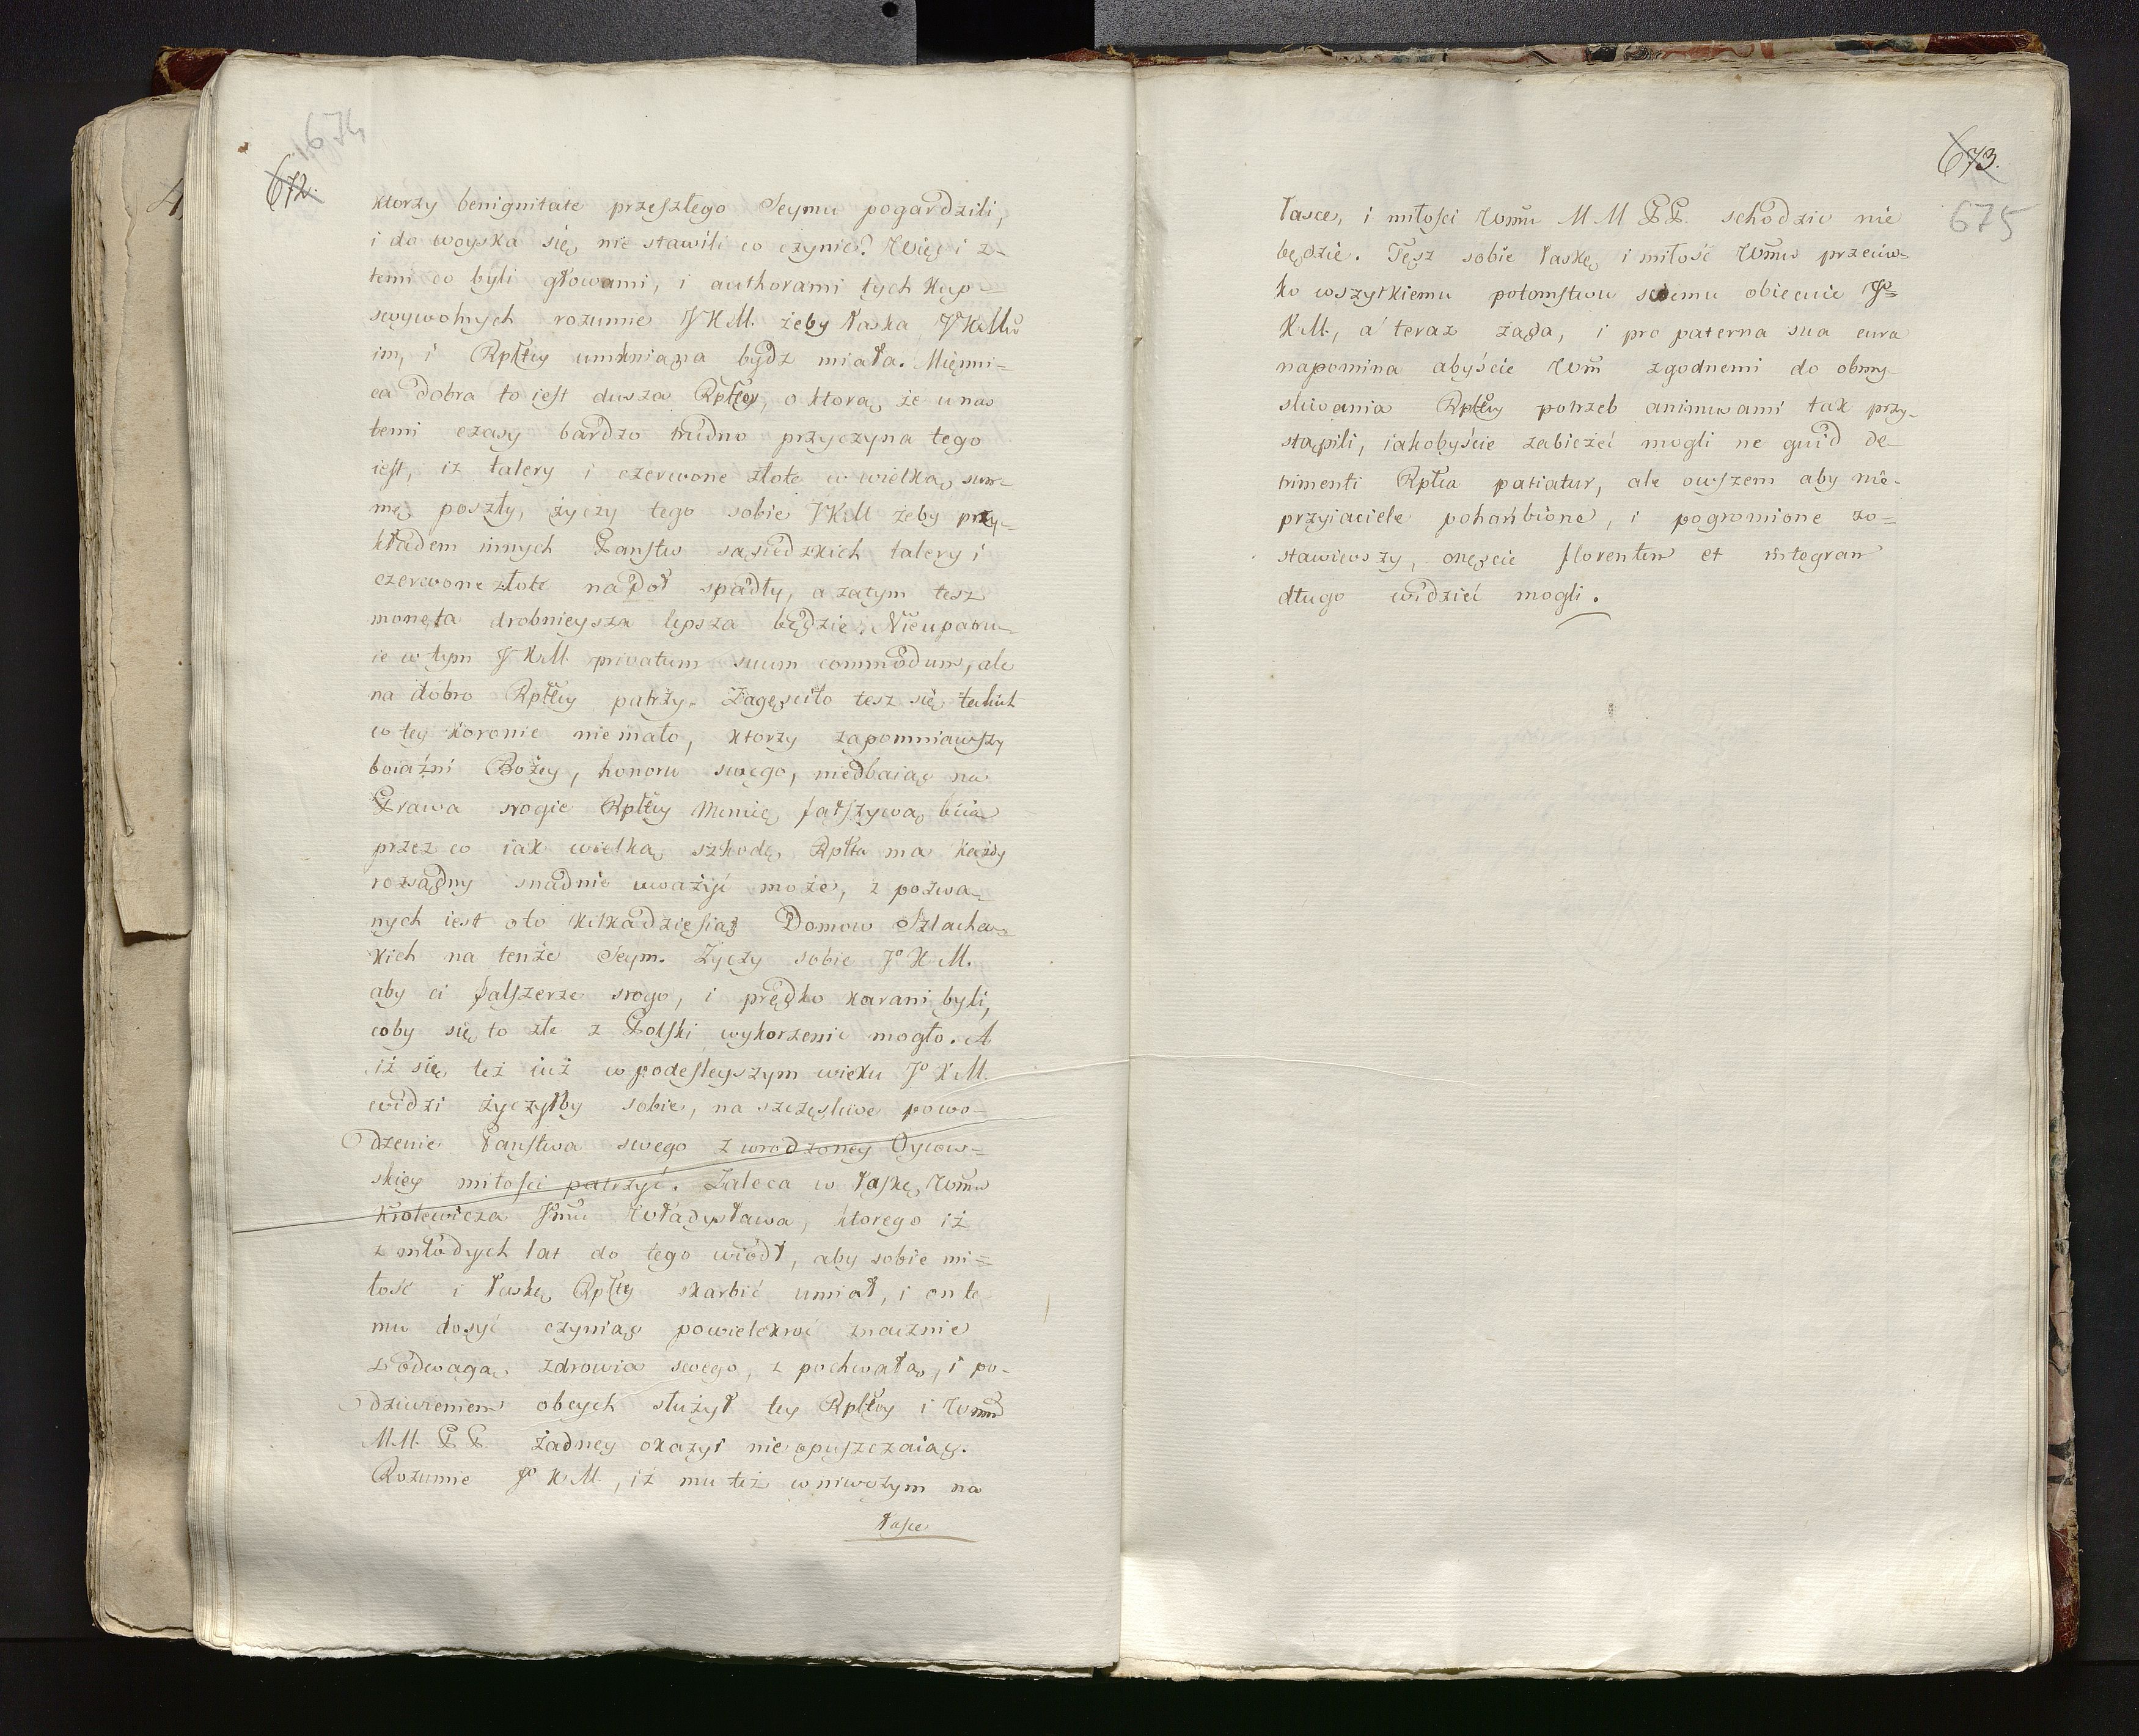 674
672.
ktorzy benignitate przeszłego Seymu pogardzili,
i do woyska się nie stawili co czynić? Więc i z-
temi co byli głowami, i authorami tych kup
swywolnych rozumie JKM. żeby łaska JKMci
im, i Rpltey umknięna bydz miała. Mięnni=
ca dobra to iest dusza Rpltey, o ktorą że u nas
temi czasy bardzo trudno przyczyna tego
iest, iż talery i czerwone złote w wielką sum-
mę poszły, życzy tego sobie JKM żeby przy-
kładem innych Panstw sąsiedzkich talery i
czerwone złote na poł spadły, a zatym tesz
moneta drobnieysza lepsza będzie. Nieupatru-
ie w tym JKM. privatum suum commodum, ale
na dobro Rpltey patrzy. Zagęsciło tesz się takich
w tey koronie niemało, ktorzy zapomniawszy
boiaźni Bożey, honoru swego, niedbaiąc na
Prawa srogie Rpltey Monetę fałszywą biią
przez co iak wielką szkodę Rplta ma każdy
rozsądny snadnie uważyć może, z pozwa-
nych iest oto kilkadziesiąt Domow Szlachec-
kich na tenże Seym. Życzy sobie Jo KM.
aby ci fałszerze srogo, i prędko karani byli,
coby się to złe z Polski wykorzenić mogło. A
iż się też iuż w podeszleyszym wieku Jo KM.
widzi życzyłby sobie, na szczęśliwe powo-
dzenie Państwa swego z wrodzoney Oycow-
skiey miłości patrzyć. Zaleca w łaskę Wmw
Krolewicza Jmci Władysława, ktorego iż
z młodych lat do tego wiodł, aby sobie mi=
łość i łaskę Rpltey skarbić umiał, i on te
mu dosyć czyniąc powielekroć znacznie
z odwagą zdrowia swego, z pochwałą, i po-
dziwieniem obcych służył tey Rpltey i Wmw
M.M. P.P. żadney okazyi nie opuszczaiąc.
Rozumie Jo KM., iż mu też w niwczym na
łasce
673.
675
łasce, i miłości Wmw M M P.P. schodzić nie
będzie. Tęsz sobie łaskę i miłość Wmw przeciw-
ko wszytkiemu potomstwu swemu obiecuie Jo=
KM., a teraz żąda, i pro paterna sua cura
napomina abyście Wm zgodnemi do obmy-
sliwania Rpltey potrzeb animuszami tak przy-
stąpili, iakobyście zabieżeć mogli ne quid de-
trimenti Rplta patiatur, ale owszem aby nie-
przyiaciele pohańbione, i pogromione zo=
stawiwszy, onęście florentem et integram
długo widzieć mogli.